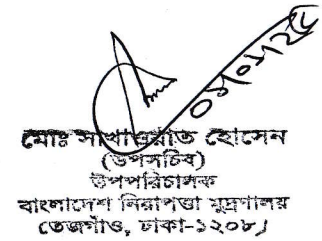 ০৯/০১/২৫
মোঃ সাখাওয়াত হোসেন
(উপসচিব)
উপপরিচালক
বাংলাদেশ নিরাপত্তা মুদ্রণালয়
তেজগাঁও, ঢাকা-১২০৮।